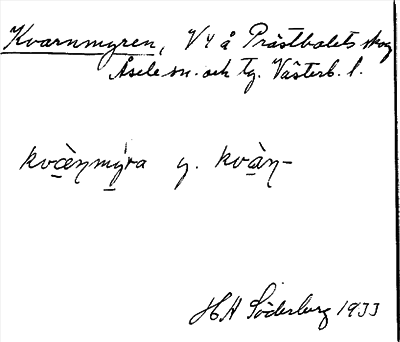 Kvarnmyren, V4 å Prästbolets skog
Åsele sn. och tg. Västerb. l.
kvàṇmýra y. kvàṇ-
HA Söderberg 1933